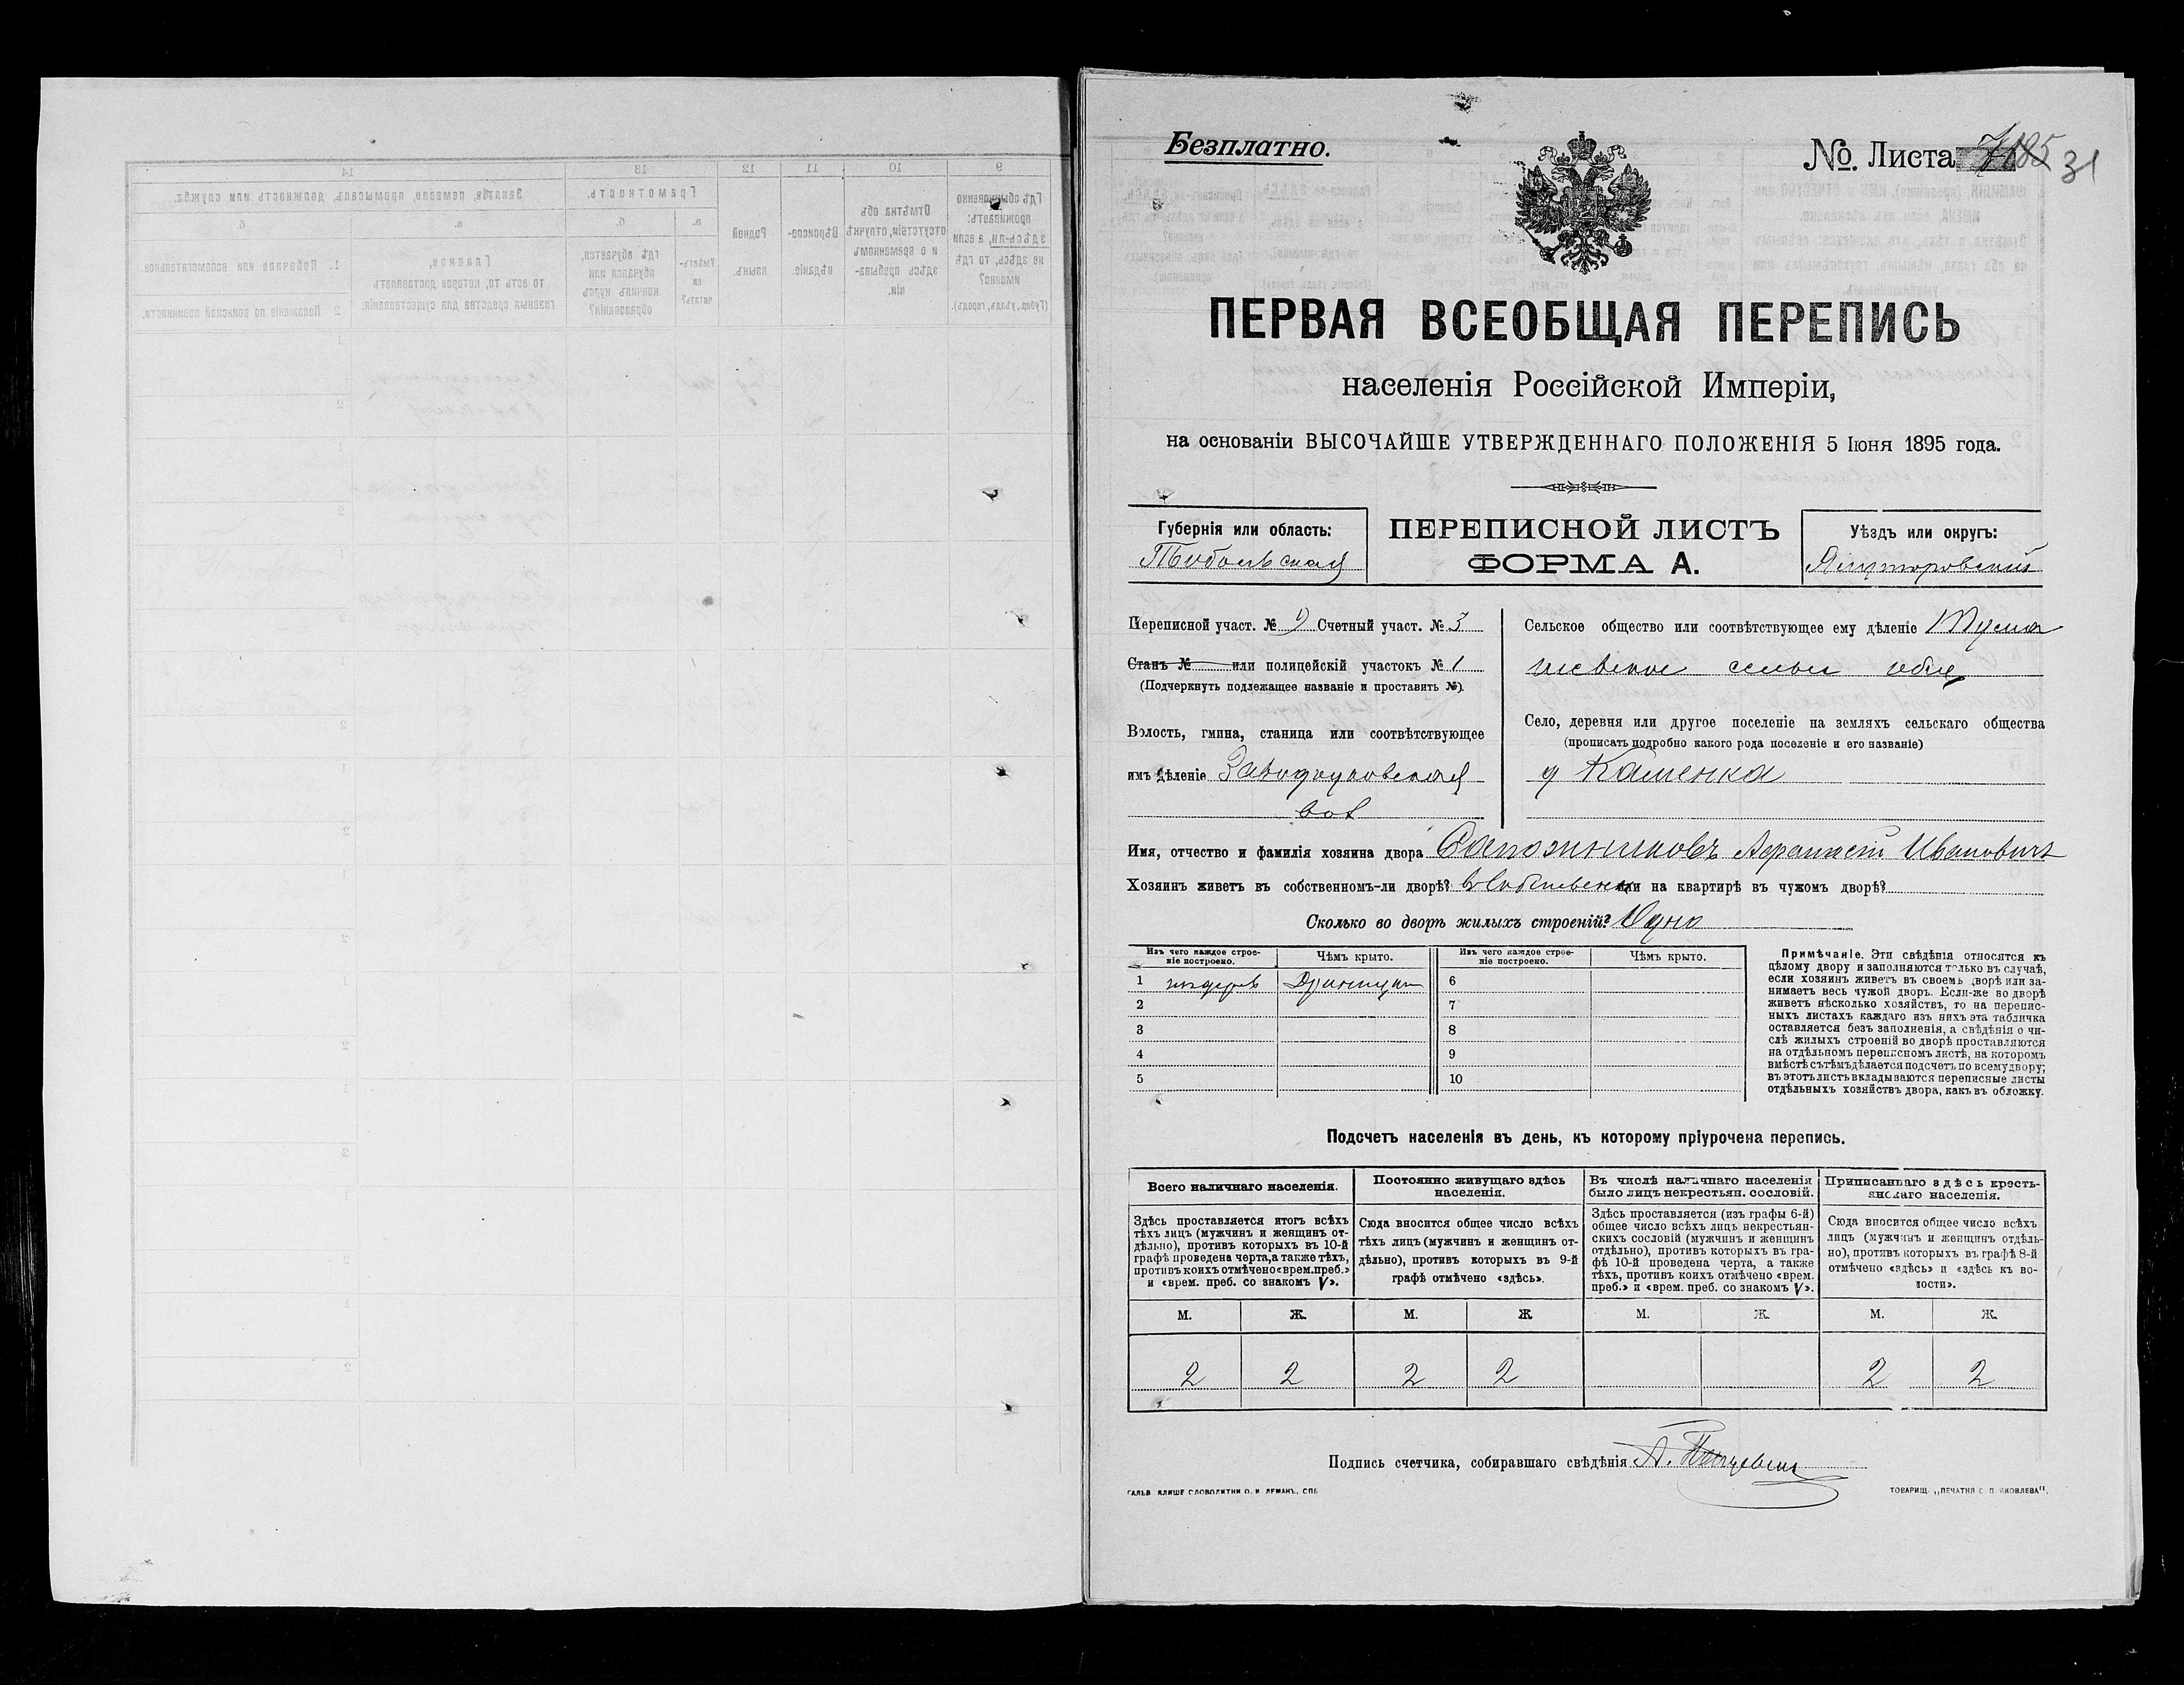 Безплатно.
№ Листа 31
ПЕРВАЯ ВСЕОБЩАЯ ПЕРЕПИСЬ
населенія Россійской Имперіи,
на основаніи ВЫСОЧАЙШЕ УТВЕРЖДЕННАГО ПОЛОЖЕНІЯ 5 Іюня 1895 года.
Губернія или область:
Тобольская
ПЕРЕПИСНОЙ ЛИСТЪ
ФОРМА А.
Уѣздъ или округъ:
Ялуторовский
Переписной участ. № 9 Счетный участ. № 3
Станъ № или полицейскій участокъ № 1
(Подчеркнуть подлежащее названіе и проставить №).
Волость, гмина, станица или соотвѣтствующее
имъ дѣленіе Заводоуковская
вол
Сельское общество или соотвѣтствующее ему дѣленіе
Село, деревня или другое поселеніе на земляхъ сельскаго общества
(прописать подробно какого рода поселеніе и его названіе)
д Каменка
Имя, отчество и фамилія хозяина двора Сапожниковъ Афанасій Ивановичъ
Хозяинъ живетъ въ собственномъ-ли дворѣ? или на квартирѣ въ чужомъ дворѣ?
Сколько во дворѣ жилыхъ строеній? Одно
Изъ чего каждое строе-
ніе построено.
Чѣмъ крыто.
Изъ чего каждое строе-
ніе построено.
Чѣмъ крыто.
1 6
2 7
3 8
4 9
5 10
Примѣчаніе. Эти свѣдѣнія относятся къ
цѣлому двору и заполняются только въ случаѣ,
если хозяинъ живетъ въ своемъ дворѣ или за-
нимаетъ весь чужой дворъ. Если-же во дворѣ
живетъ нѣсколько хозяйствъ, то на перепис-
ныхъ листахъ каждаго изъ нихъ эта табличка
оставляется безъ заполненія, а свѣдѣнія о чи-
слѣ жилыхъ строеній во дворѣ проставляются
на отдѣльномъ переписномъ листѣ, на которомъ
вмѣстѣ съ тѣмъ дѣлается подсчетъ по всему двору;
въ этотъ листъ вкладываются переписные листы
отдѣльныхъ хозяйствъ двора, какъ въ обложку.
Подсчетъ населенія въ день, къ которому пріурочена перепись.
Всего наличнаго населенія.
Постоянно живущаго здѣсь
населенія.
Въ числѣ наличнаго населенія
было лицъ некрестьян. сословій.
Приписаннаго здѣсь кресть-
янскаго населенія.
Здѣсь проставляется итогъ всѣхъ
тѣхъ лицъ (мужчинъ и женщинъ от-
дѣльно), противъ которыхъ въ 10-й
графѣ проведена черта, а также тѣхъ,
противъ коихъ отмѣчено «врем. преб.»
и «врем. преб. со знакомъ V».
Сюда вносится общее число всѣхъ
тѣхъ лицъ (мужчинъ и женщинъ от-
дѣльно), противъ которыхъ въ 9-й
графѣ отмѣчено «здѣсь».
Здѣсь проставляется (изъ графы 6-й)
общее число всѣхъ лицъ некрестьян-
скихъ сословій (мужчинъ и женщинъ
отдѣльно), противъ которыхъ въ гра-
фѣ 10-й проведена черта, а также
тѣхъ, противъ коихъ отмѣчено «врем.
преб.» и «врем. преб. со знакомъ V».
Сюда вносится общее число всѣхъ
лицъ (мужчинъ и женщинъ отдѣль-
но), противъ которыхъ въ графѣ 8-й
отмѣчено «здѣсь» и «здѣсь къ во-
лости».
М. Ж. М. Ж. М. Ж. М. Ж.
2 2 2 2 2 2
Подпись счетчика, собиравшаго свѣдѣнія
ГАЛЬВ. КЛИШЕ СЛОВОЛИТНИ О. И. ЛЕМАНЪ, СПБ.
ТОВАРИЩ. „ПЕЧАТНЯ С. П. ЯКОВЛЕВА“.